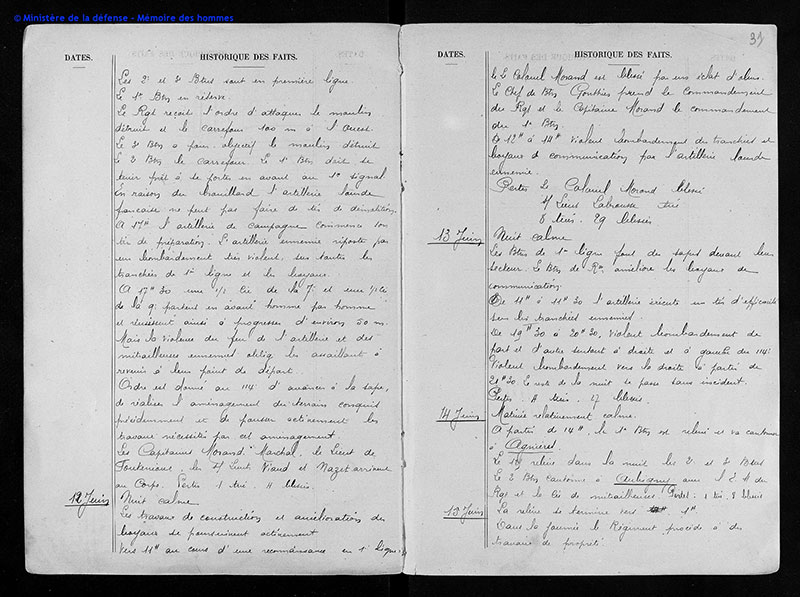 © Ministère de la défense - Mémoire des hommes
DATES.
HISTORIQUE DES FAITS.
Les 2e et 3 Btns sont en première ligne
Le 1er Btn en réserve.
Le Rgt reçoit l'ordre d'attaquer le moulin
détruit et le carrefour 100 m à l'Ouest.
Le 3 Btn a pour objectif le moulin détruit
Le 2 Btn le carrefour. Le 1er Btn doit se
tenir prêt à se porter en avant au 1er signal
En raison du brouillard l'artillerie lourde
française ne peut pas faire de tir de démolition.
A 17H l'artillerie de campagne commence son
tir de préparation. L'artillerie ennemie riposte par
un bombardement très violent, sur toutes les
tranchées de 1ère ligne et les boyaux.
A 17H30 une 1/2 Cie de la 7e et une 1/2 Cie
de la 9e partent en avant homme par homme
et réussissent ainsi à progresser d'environ 50 m.
Mais la violence du feu de l'artillerie et des
mitrailleuses ennemies oblige les assaillants à
revenir à leur point de départ.
Ordre est donné au 114e d'avancer à la sape,
de réaliser l'aménagement des terrains conquis
précédemment et de pousser activement les
travaux nécessités par cet aménagement.
Les Capitaines Morand, Marchal, le Lieut de
le S/Lieut Viaud et Nazet arrivent
au Corps. Pertes 1 tué. 11 blessés.
12 Juin
Nuit calme
Les travaux de construction et amélioration des
boyaux se poursuivent activement
Vers 11H au cours d'une reconnaissance en 1e ligne
39
DATES.
HISTORIQUE DES FAITS.
le Lt Colonel Morand est blessé par un éclat d'obus.
Le Chef de Btn Gouthier prend le commandement
du Rgt et le Capitaine Morand le commandement
du 1er Btn.
De 12H à 14H violent bombardement des tranchées et
boyaux de communication par l'artillerie lourde
ennemie.
Pertes Lt Colonel Morand blessé
S/Lieut Labrousse tué
8 tués. 29 blessés
13 Juin
Nuit calme
Les Btns de 1ère ligne font des sapes devant leur
secteur. Le Btn de Rve améliore les boyaux de
communication.
De 11H à 11H30 l'artillerie exécute un tir d'efficacité
sur les tranchées ennemies.
De 19H30 à 20H30, violent bombardement de
part et d'autre surtout à droite et à gauche du 114e
Violent bombardement vers la droite à partir de
21H30 Le reste de la nuit se passe sans incident.
Pertes. 4 tués. 27 blessés.
14 Juin
Matinée relativement calme.
A partir de 14H, le 1er Btn est relevé et va cantonner
à Agnières.
Le relève dans la nuit les 2e et 3 Btns
Le 3 Btn cantonne à Aubigny avec l'E.M du
Rgt et la Cie de mitrailleuses. Pertes: 1 tué, 8 blessés
15 Juin
La relève se termine vers 1H
Dans la journée le Régiment procède à des
travaux de propreté.